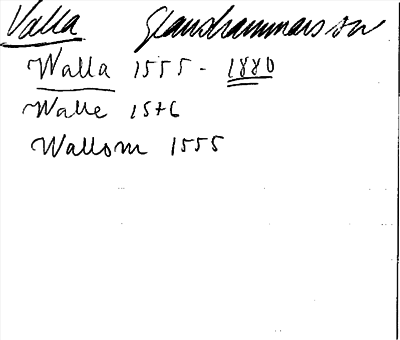 Valla Glanshammars sn
Walla 1555 - 1880
Walle 1546
Wallom 1555